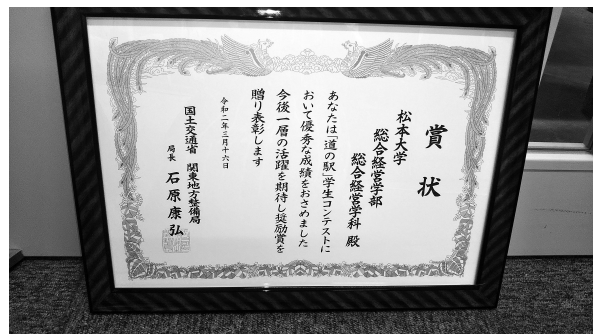 賞状
松本大学
総合経営学部
総合経営学科 殿
あなたは「道の駅」学生コンテストに
おいて優秀な成績をおさめました
今後一層の活躍を期待し奨励賞を
贈り表彰します
令和二年三月十六日
国土交通省 関東地方整備局
局長 石原康弘